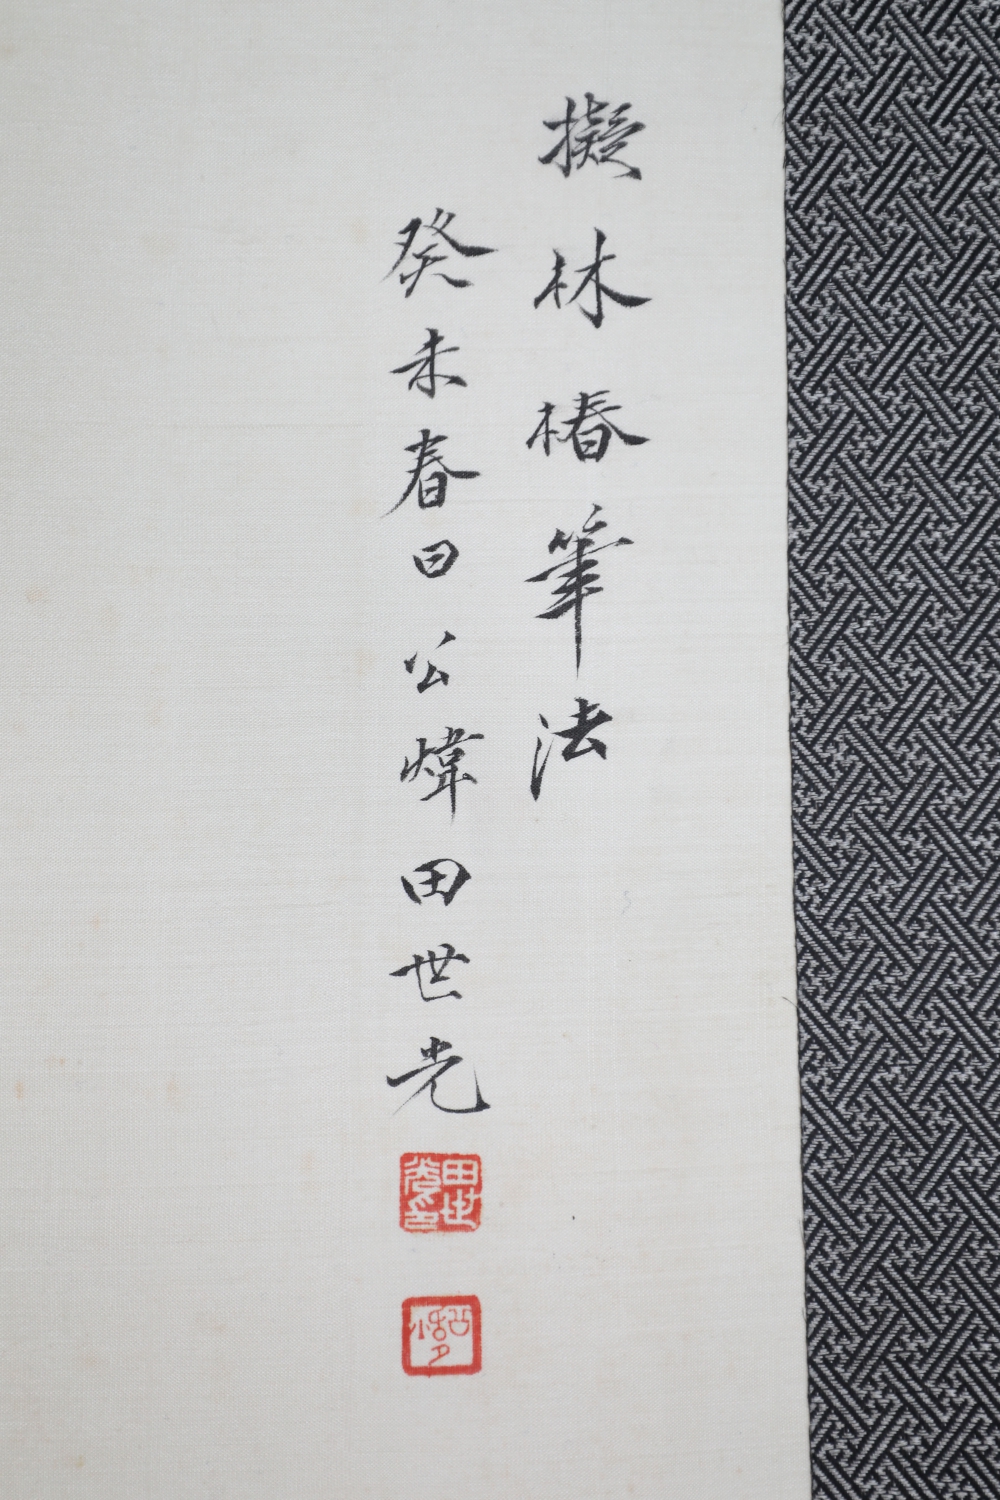 擬林椿筆法
癸未春日公煒田世光
田世光印